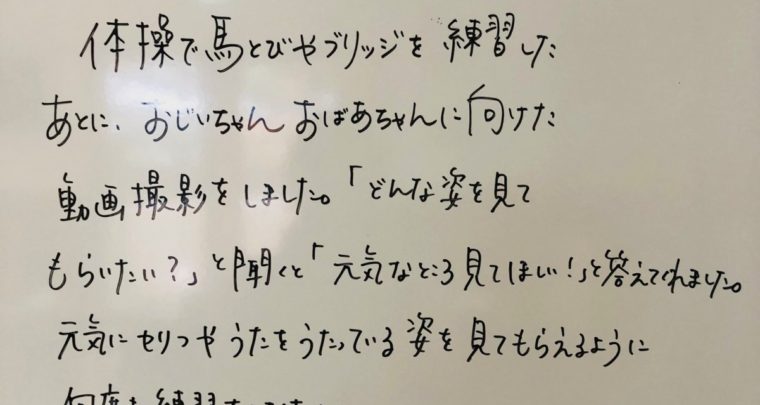 体操で馬とびやブリッジを練習した
あとに、おじいちゃんおばあちゃんに向けた
動画撮影をしました。「どんな姿を見て
もらいたい？」と聞くと「元気なところ見てほしい！」と答えてくれました。
元気にセリフやうたをうたっている姿を見てもらえるように